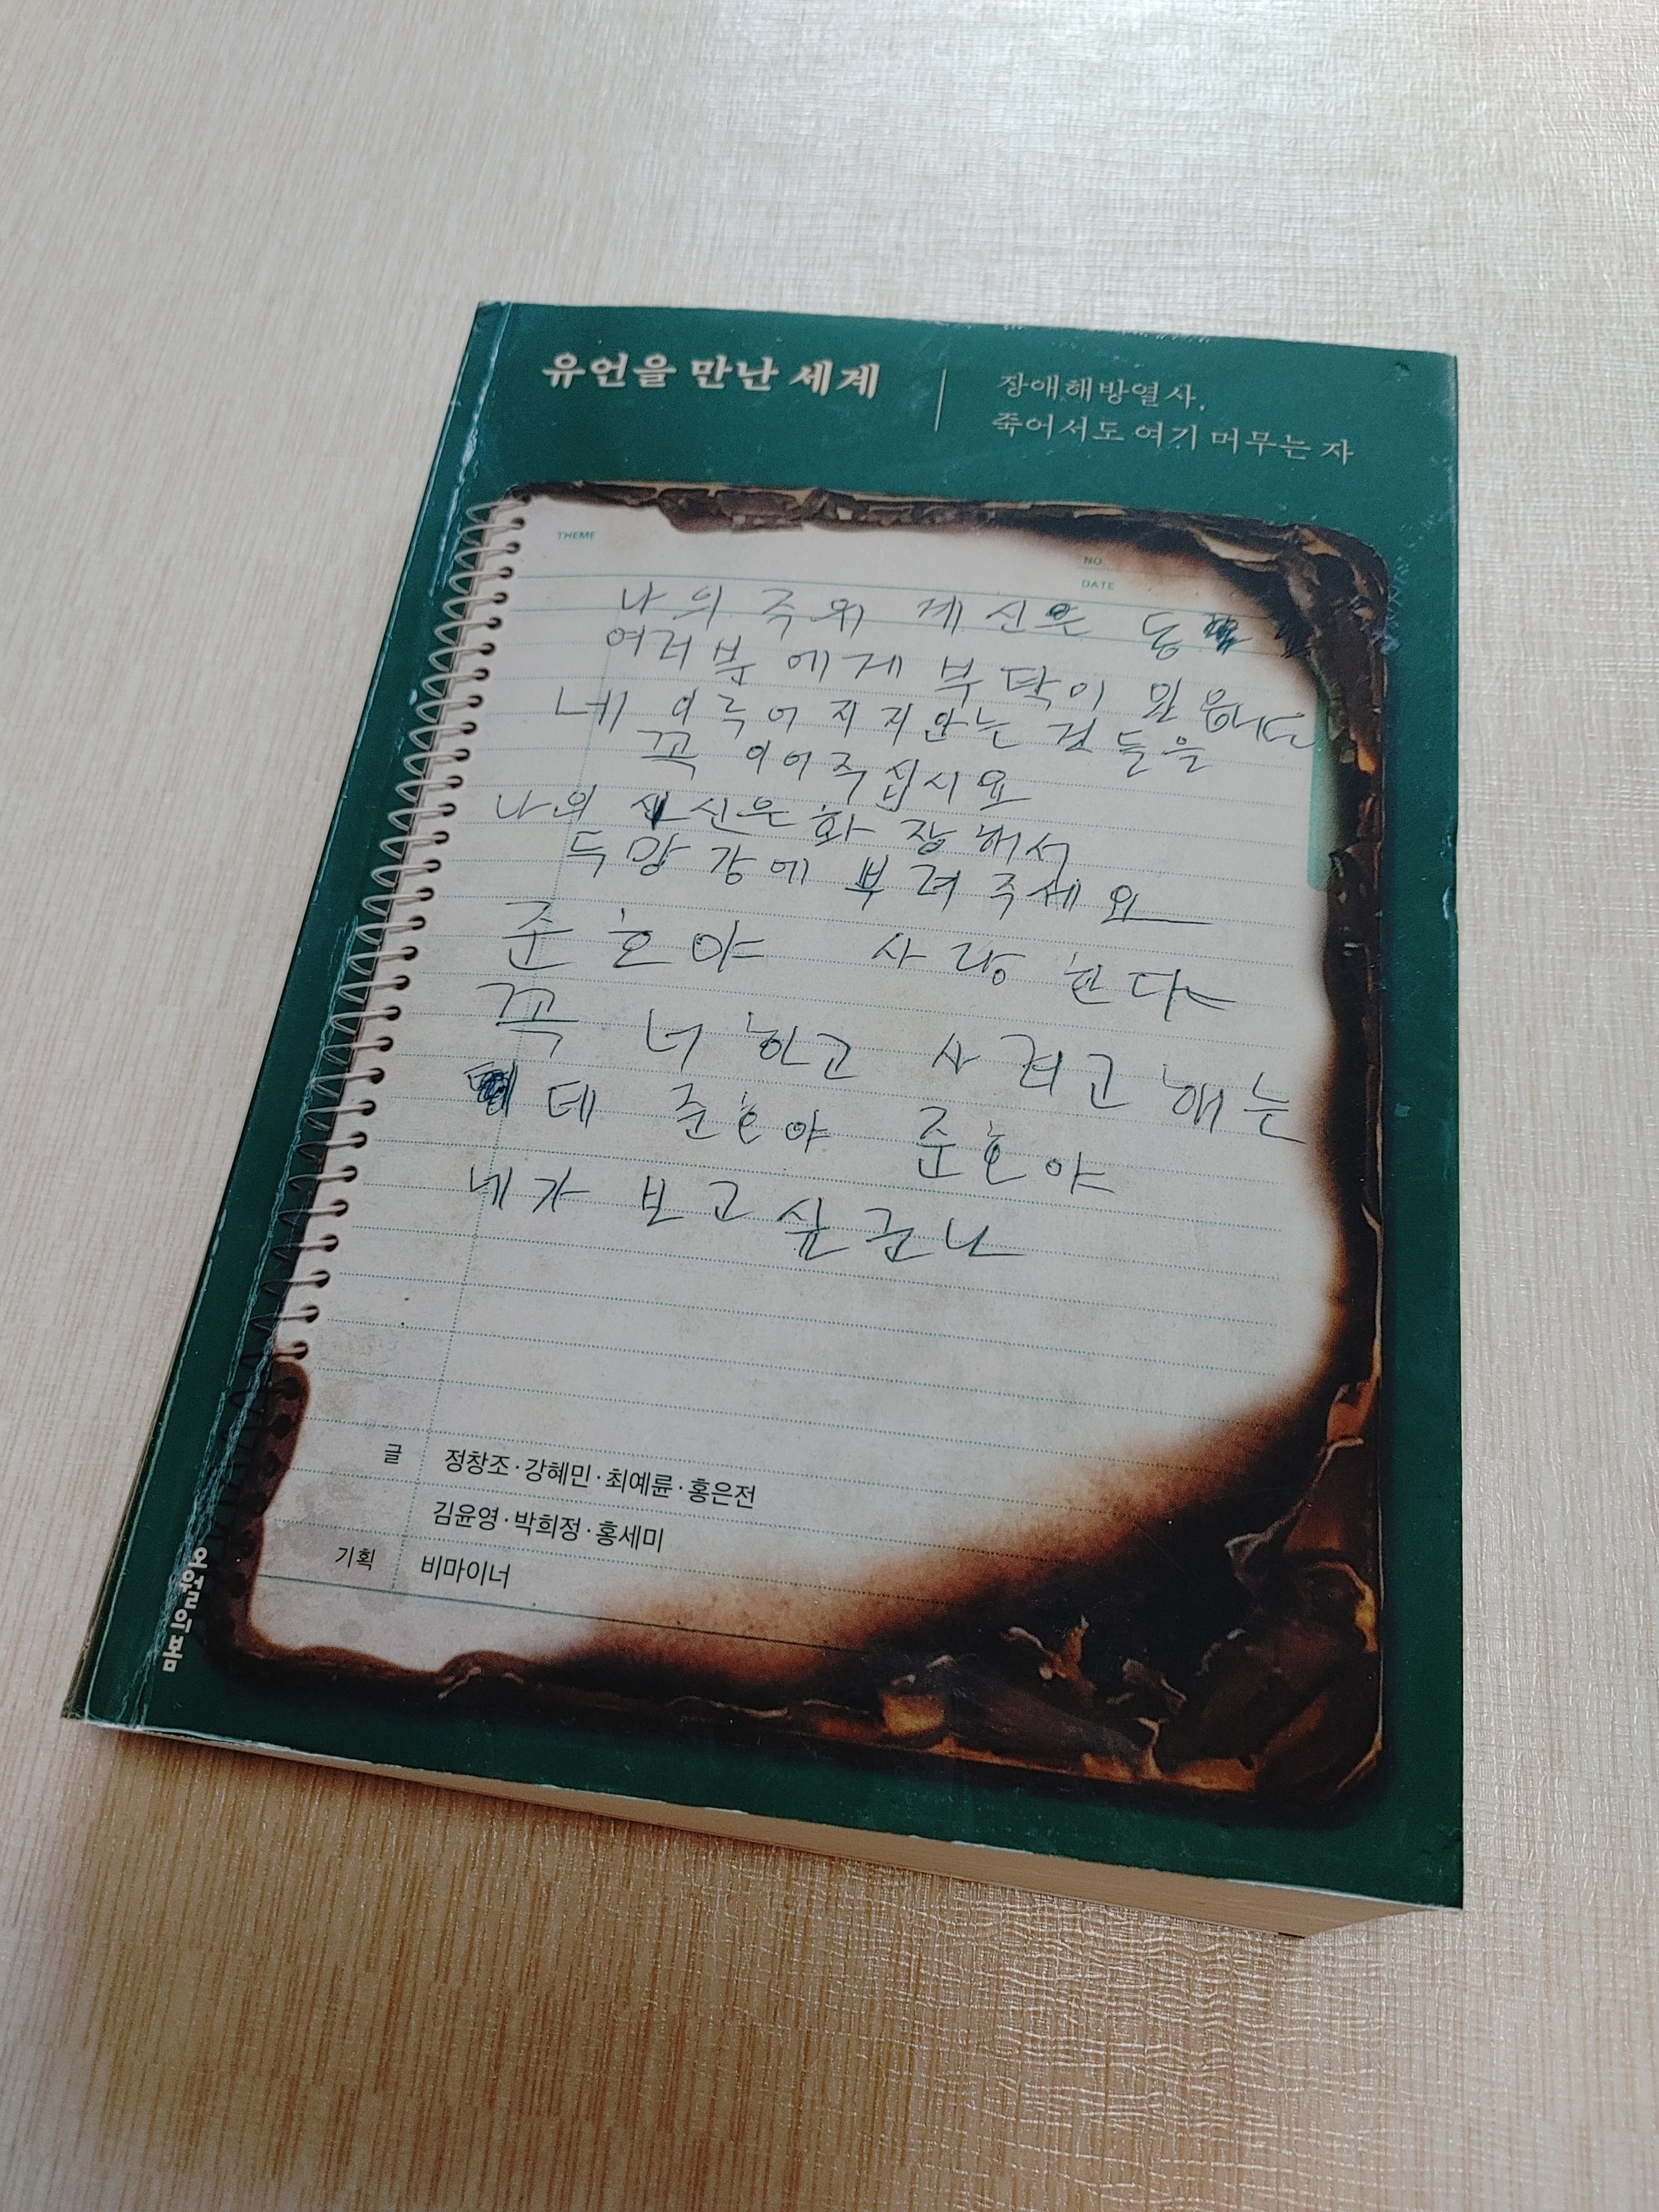 유언을 만난 세계
장애해방열사,
죽어서도 여기 머무는 자
THEME
NO.
DATE
나의 주위 계신은 동
여러분에게 부탁이 있읍니다
네 이루어지지안는 것들을
꼭 이어주십시요
나의 신은 화장해서
두망강에 부려주세요
준호야 사랑한다
꼭 너하고 사려고 해는
데 준호야 준호야
네가 보고싶군나
글 정창조·강혜민·최예륜·홍은전
김윤영·박희정·홍세미
기획 비마이너
오월의봄